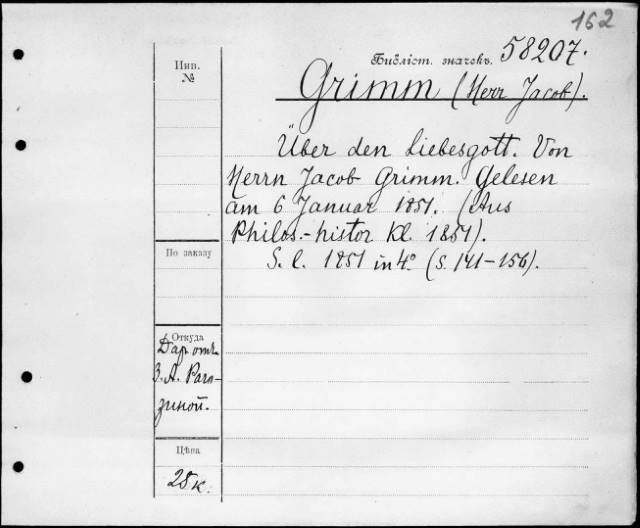 162
Библіот. значекъ. 58207.
Инв.
№
Grimm (Herr Jacob).
Über den Liebesgott. Von
Herrn Jacob Grimm. Gelesen
am 6 Januar 1851. (Aus
Philos.-histor Kl. 1851).
S. l. 1851 in 4° (S. 141-156).
По заказу
Откуда
Даръ отъ
З. А. Раго-
зиной.
Цѣна
25 к.